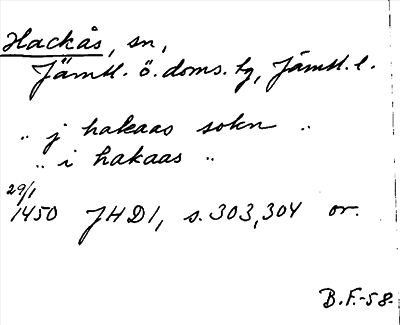 Hackås, sn,
Jämtl. ö. doms. tg, Jämtl. l.
" j hakaas sokn "
" i hakaas "
29/1
1450 JHD 1, s. 303, 304 or.
B.F.-58.